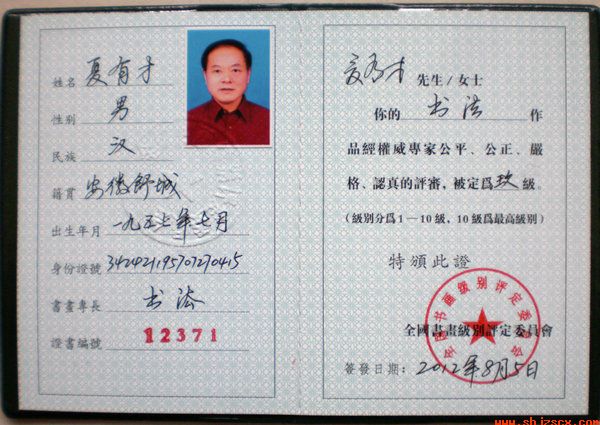 姓名 夏有才
性别 男
民族 汉
籍貫 安徽舒城
出生年月 一九五七年七月
身份證號 342421195707270415
書畫專長 书法
證書編號 12371
夏有才 先生/女士
你的 书法 作
品經權威專家公平、公正、嚴
格、認真的評審，被定爲 玖 級。
(級别分爲1—10級，10級爲最高級别)
特頒此證
全國書畫級别評定委員會
全国书画级别评定委员会
簽發日期：2012年8月5日
www.shjzscx.com